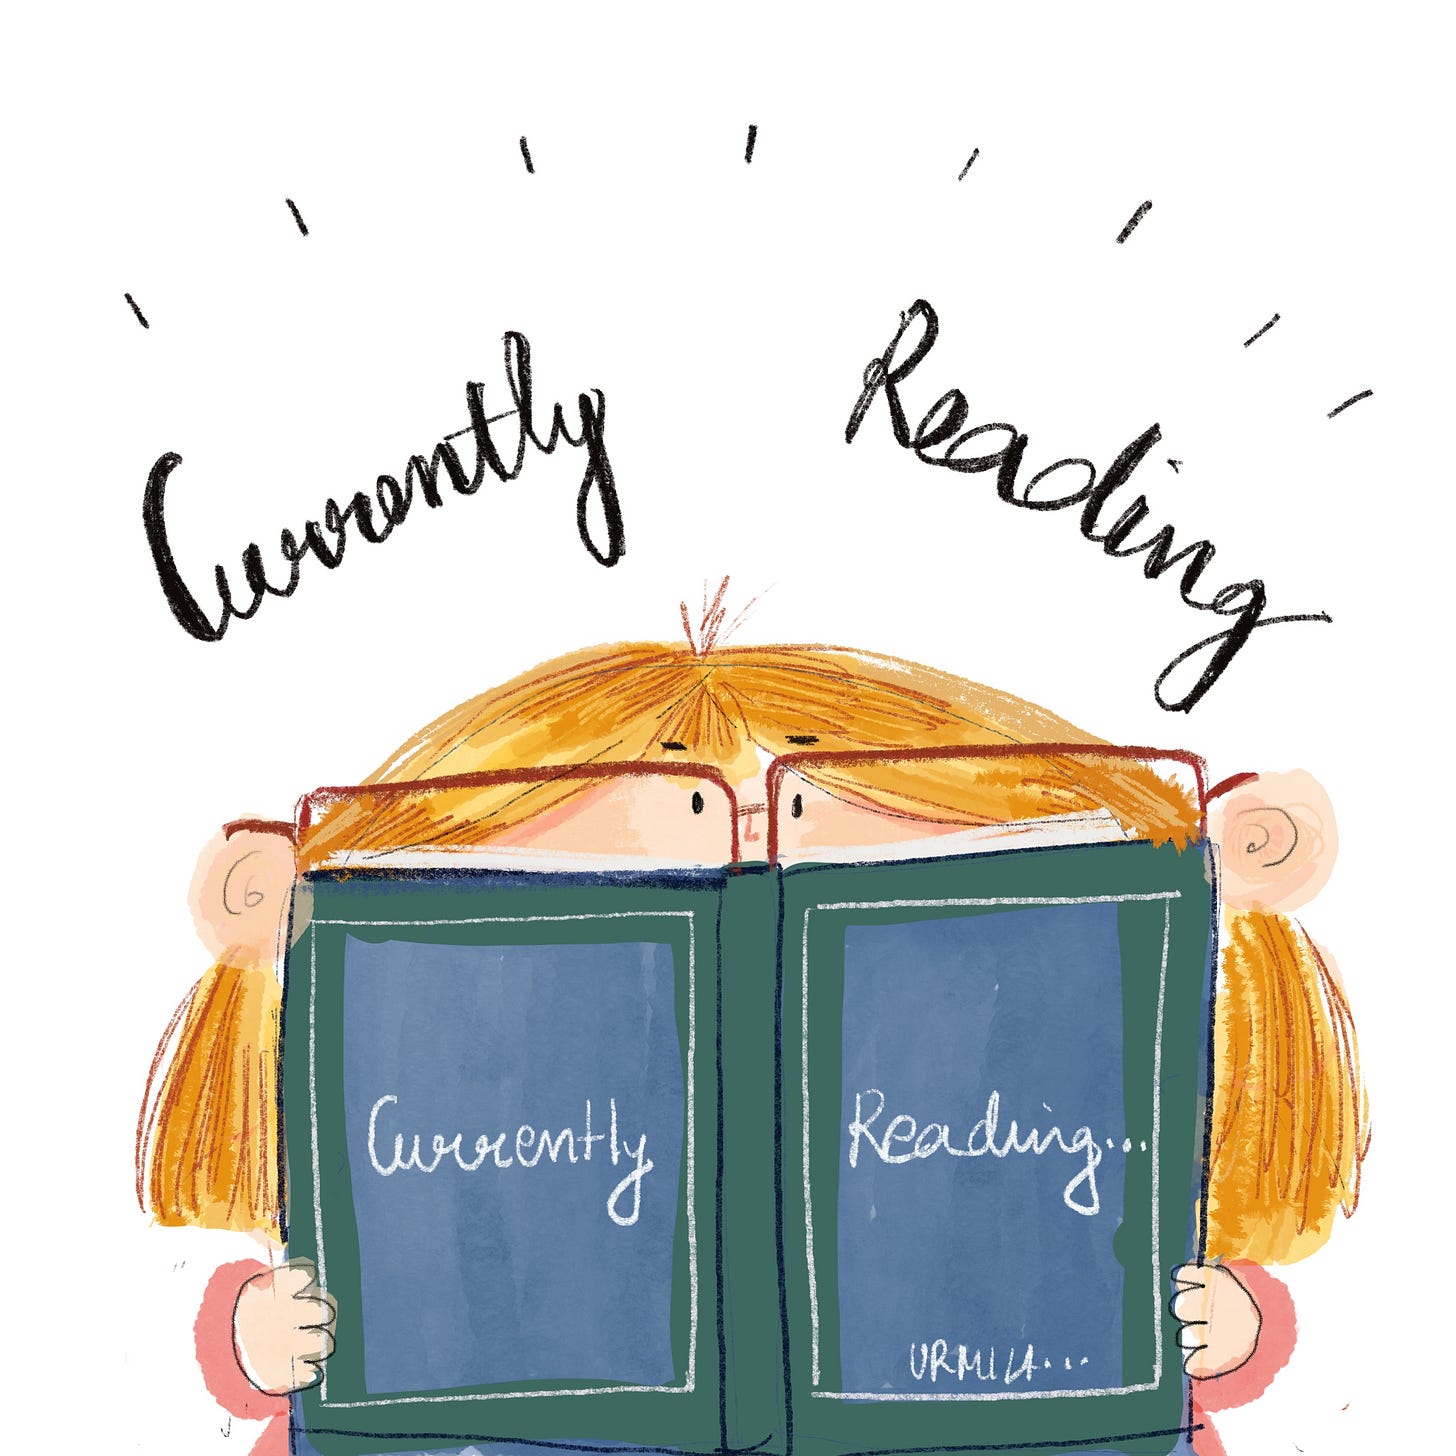 Currently Reading
Currently
Reading...
URMILA...